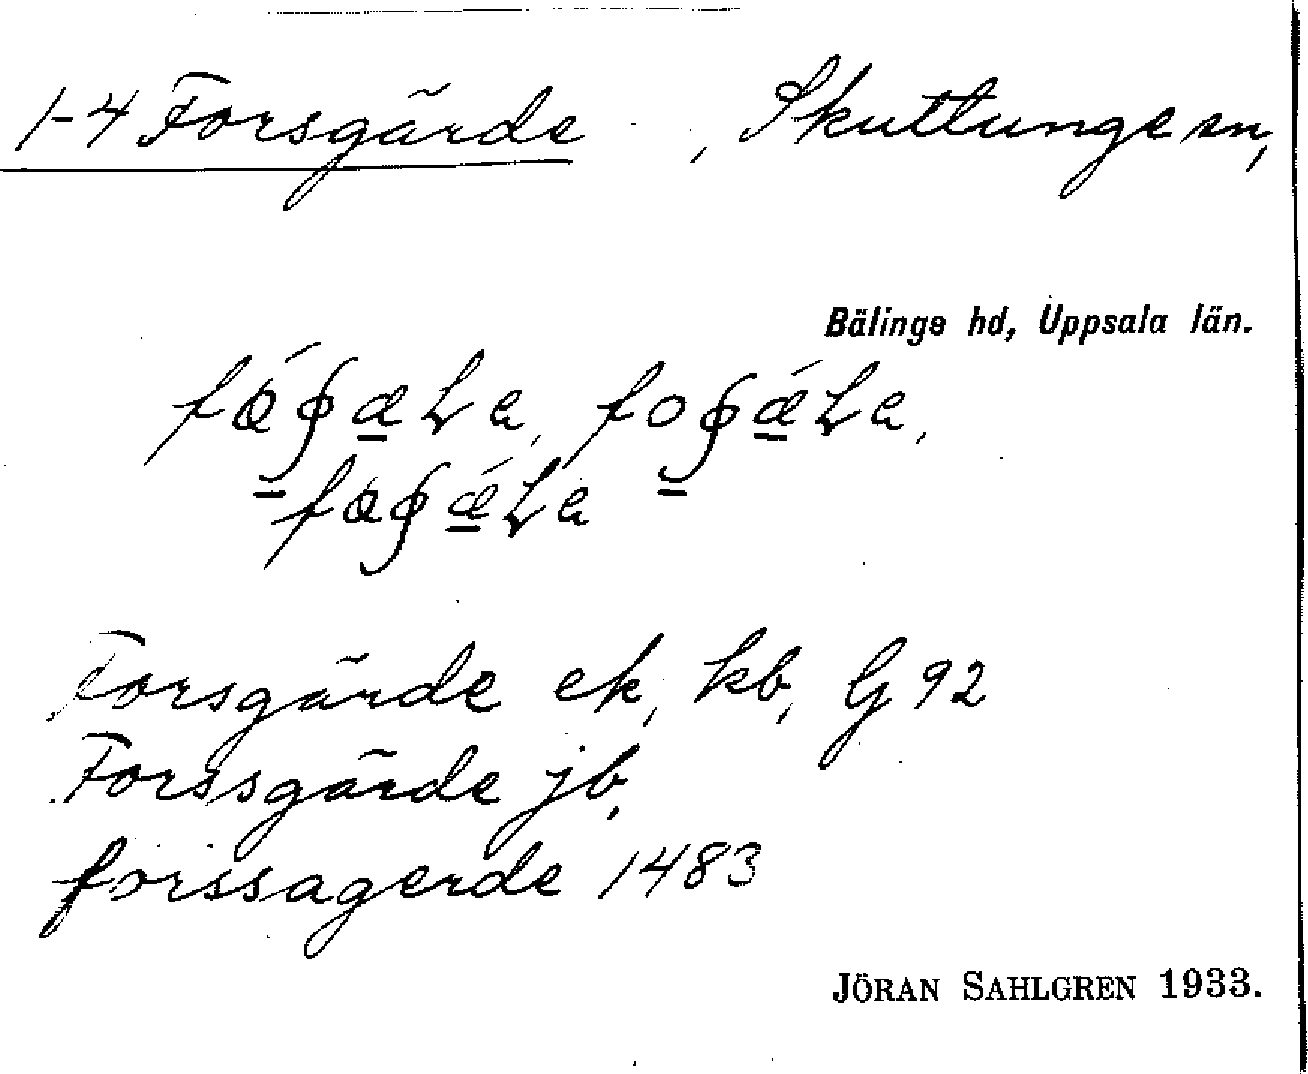 1-4 Forsgärde , Skuttunge sn,
Bälinge hd, Uppsala län.
Forsgärde ek, kb, G 92
Forssgärde jb,
forssagerde 1483
JÖRAN SAHLGREN 1933.